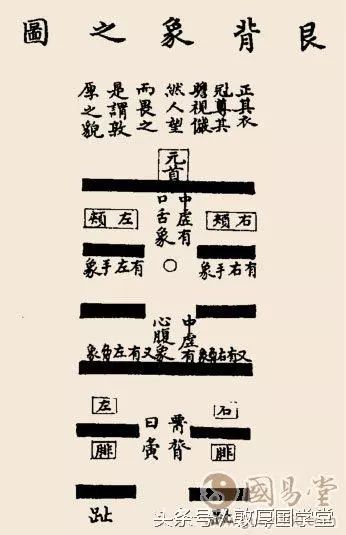 艮背象之圖
正其衣
冠尊其
瞻視儼
然人望
而畏之
是謂敦
原之貌
元首
中虛有
口舌象
右頰
左頰
有右手象
有左手象
中虛有
心腹象
右
左
曰夤
腓
腓
趾
趾
國易堂
头条号/敦厚国学堂